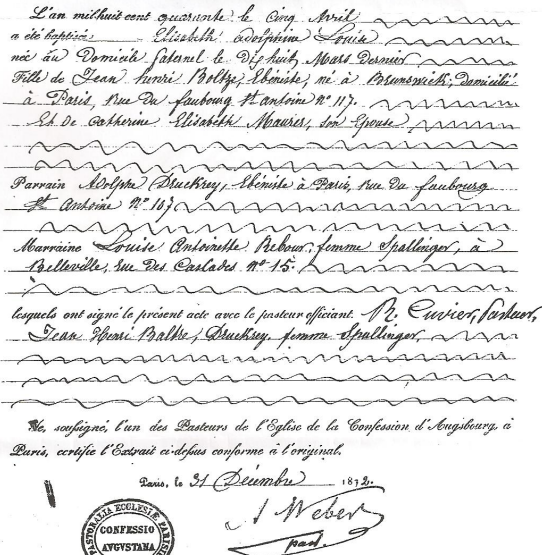 L'an mil huit cent quarante le cinq Avril
a été baptisée Elisabeth Adolphine Louise
née au Domicile paternel le dix huit Mars dernier
Fille de Jean henri Boltze, Ebéniste, né à Brunswick, domicilié
à Paris, Rue du faubourg St antoine n° 117.
Et de Catherine Elisabeth Maurer, son Epouse
Parrain Adolphe Druckrey, Ebéniste à Paris, rue du faubourg
St Antoine n° 107
Marraine Louise Antoinette Rebour, femme Spallinger, à
Belleville, rue des Caslades n° 15.
lesquels ont signé le présent acte avec le pasteur officiant. R. Cuvier, Pasteur,
Jean Henri Baltze, Druckrey, femme Spallinger
Je, soussigné, l'un des Pasteurs de l'Eglise de la Confession d'Augsbourg, à
Paris, certifie l'Extrait ci-dessus conforme à l'original.
Paris, le 31 Décembre 1872.
A Weber
past.
PASTORALIA ECCLESIÆ PARISI
CONFESSIO
AVGVSTANA